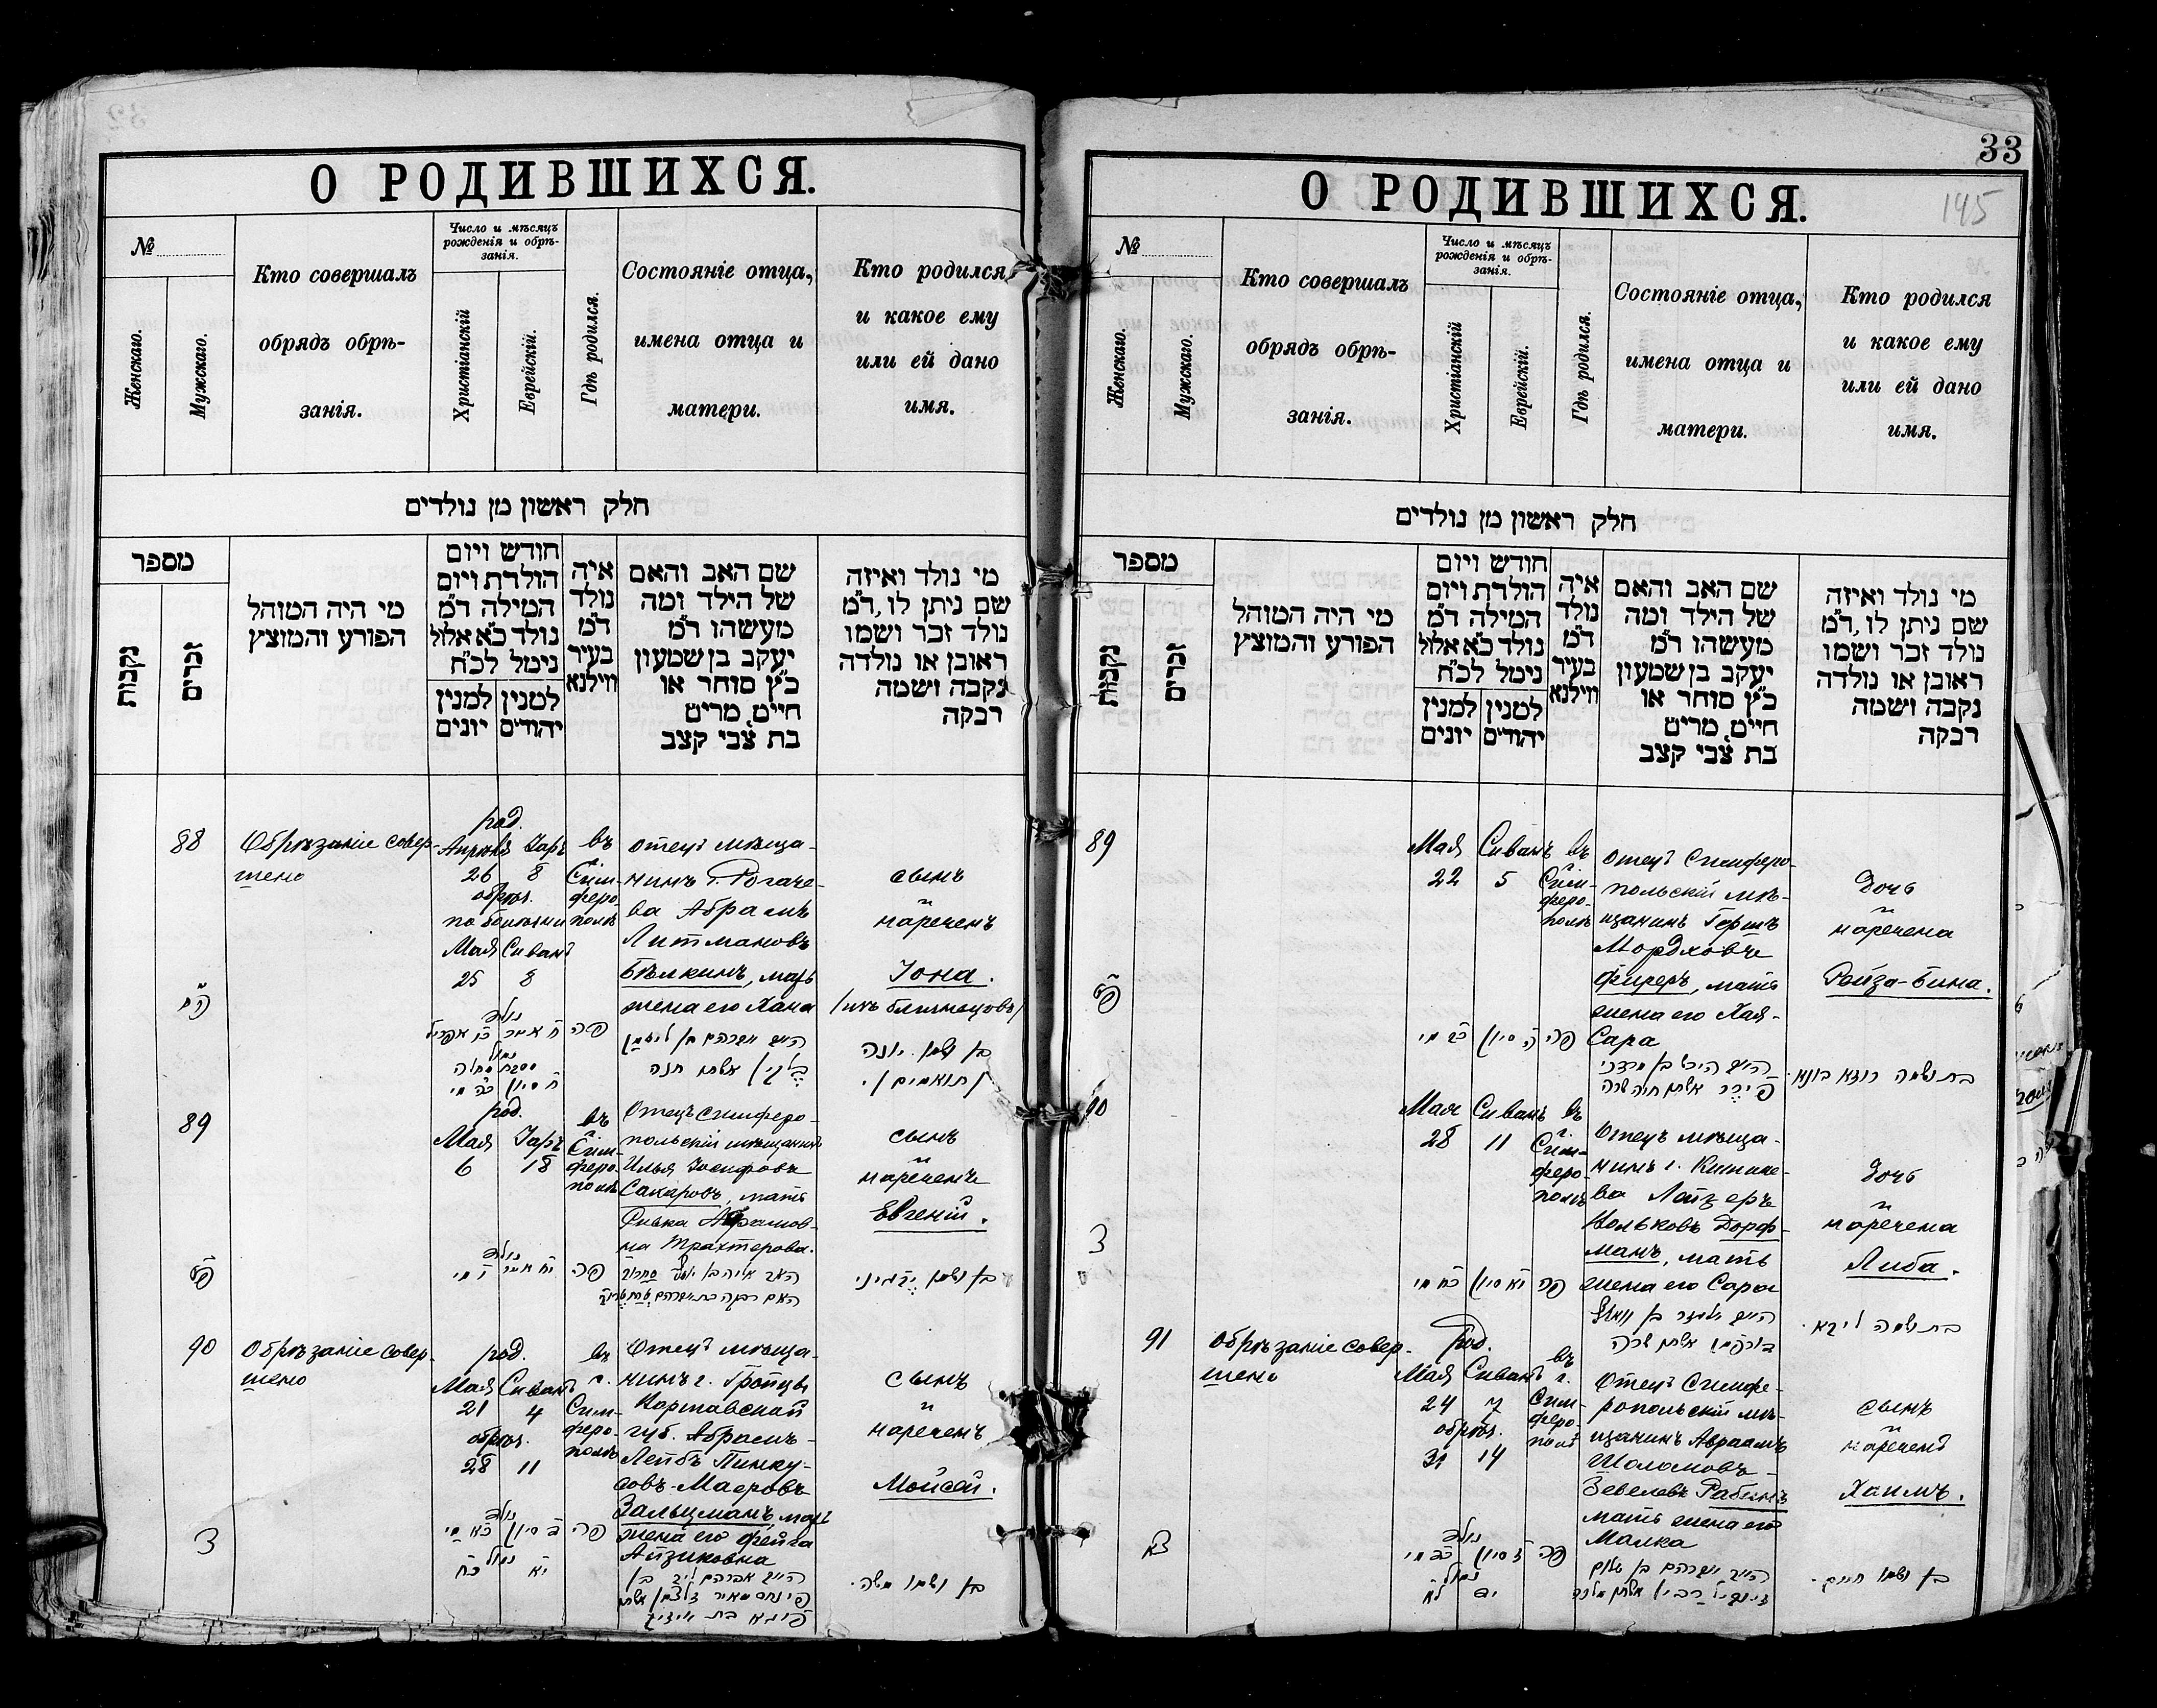 О РОДИВШИХСЯ.
№
Женскаго.
Мужскаго.
Кто совершалъ
обрядъ обрѣ-
занія.
Число и мѣсяцъ
рожденія и обрѣ-
занія.
Христіанскій
Еврейскій.
Гдѣ родился.
Состояніе отца,
имена отца и
матери.
Кто родился
и какое ему
или ей дано
имя.
חלק ראשון מן נולדים
מספר
נקבות
זכרים
מי היה המוהל
הפורע והמוצץ
חודש ויום
הולדת ויום
המילה ד"מ
נולד כ"א אלול
נימל לכ"ח
למנין יהודים
למנין יונים
איה
נולד
ד"מ
בעיר
ווילנא
שם האב והאם
של הילד ומה
מעשהו ד"מ
יעקב בן שמעון
כ"ץ סוחר או
חייט, מרים
בת צבי קצב
מי נולד ואיזה
שם ניתן לו, ד"מ
נולד זכר ושמו
ראובן או נולדה
נקבה ושמה
רבקה
88
Обрѣзаніе совер-
шено
род.
Апрѣля Іаръ
26 8
обрѣз.
по болѣзни
Мая Сиванъ
25 8
въ
г.
Сим-
феро-
полѣ
отецъ мѣща-
нинъ г. Рогаче-
ва Абрамъ
Литмановъ
Бѣлкинъ, мать
жена его Хана
сынъ
и
нареченъ
Іона.
/изъ близнецовъ/
פה
בן ושמו יונה
/תואמים/.
89
род.
Мая Іаръ
6 18
въ
г.
Сим-
феро-
полѣ
Отецъ симферо-
польскій мѣщанинъ
Илья Іосифовъ
Сахаровъ, мать
Ривка Абрамов-
на Трахтерова.
сынъ
и
нареченъ
Евгеній.
פה
בן ושמו
90
Обрѣзаніе совер-
шено
род.
Мая Сиванъ
21 4
обрѣз.
28 11
въ
г.
Сим-
феро-
полѣ
Отецъ мѣща-
нинъ г.
губ. Абрамъ-
Лейбъ Пинку-
совъ-Маеровъ
Зальцманъ, мать
жена его Фейга
Айзиковна
сынъ
и
нареченъ
Мойсей.
פה
בן ושמו משה.
33
145
О РОДИВШИХСЯ.
№
Женскаго.
Мужскаго.
Кто совершалъ
обрядъ обрѣ-
занія.
Число и мѣсяцъ
рожденія и обрѣ-
занія.
Христіанскій
Еврейскій.
Гдѣ родился.
Состояніе отца,
имена отца и
матери.
Кто родился
и какое ему
или ей дано
имя.
חלק ראשון מן נולדים
מספר
נקבות
זכרים
מי היה המוהל
הפורע והמוצץ
חודש ויום
הולדת ויום
המילה ד"מ
נולד כ"א אלול
נימל לכ"ח
למנין יהודים
למנין יונים
איה
נולד
ד"מ
בעיר
ווילנא
שם האב והאם
של הילד ומה
מעשהו ד"מ
יעקב בן שמעון
כ"ץ סוחר או
חייט, מרים
בת צבי קצב
מי נולד ואיזה
שם ניתן לו, ד"מ
נולד זכר ושמו
ראובן או נולדה
נקבה ושמה
רבקה
89
Мая Сиванъ
22 5
въ
г.
Сим-
феро-
полѣ
отецъ Симферо-
польскій мѣ-
щанинъ Гершъ
Мордховъ
Фиреръ, мать
жена его Хая-
Сара
Дочь
и
наречена
Рейза-Бина.
פה
90
Мая Сиванъ
28 11
въ
г.
Сим-
феро-
полѣ
Отецъ мѣща-
нинъ г. Кишине-
ва Лейзеръ
Вольковъ Дорф-
манъ, мать
жена его Сара
дочь
и
наречена
Либа.
פה
בת ושמה ליבא.
91
Обрѣзаніе совер-
шено
род.
Мая Сиванъ
24 7
обрѣз.
31 14
въ
г.
Сим-
феро-
полѣ
Отецъ Симфе-
ропольскій мѣ-
щанинъ Авраамъ
Шоломовъ-
Зевелевъ Рабинъ
мать жена его
Малка
сынъ
и
нареченъ
Хаимъ.
פה
בן ושמו חיים.